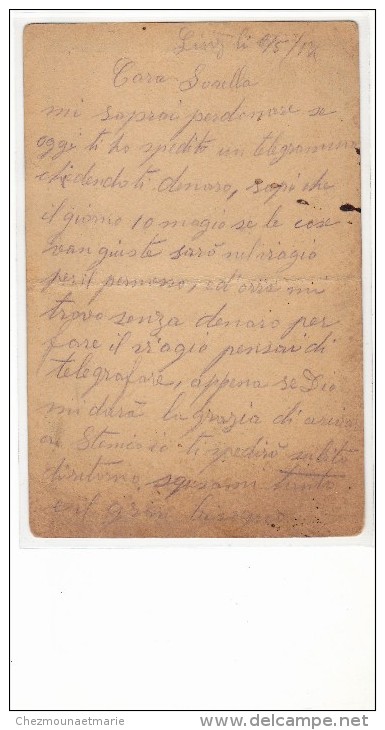 Linz li 6/5/17
Cara Sorella
mi saprai perdonare se
oggi ti ho spedito un telegramma
chidendoti denaro, sapi che
il giorno 10 magio se le cose
van giuste sarò nel viagio
per il permesso, ed'orra mi
trovo senza denaro per
fare il viagio pensai di
telegrafare, appena se Dio
mi darà la grazia di
a ti spedirò subito
di ritorno, tanto
e il gran bisogno
Chezmounaetmarie